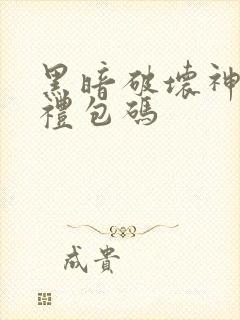 黑暗破壞神
禮包碼
成貴